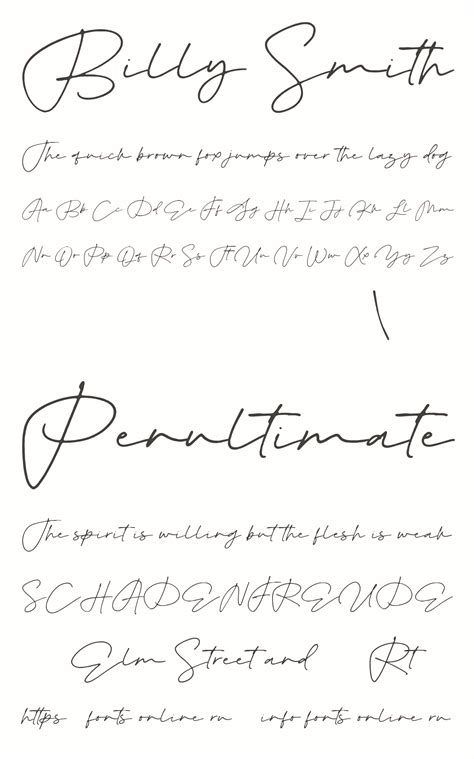 Billy Smith
The quick brown fox jumps over the lazy dog
Aa Bb Cc Dd Ee Ff Gg Hh Ii Jj Kk Ll Mm
Nn Oo Pp Qq Rr Ss Tt Uu Vv Ww Xx Yy Zz
\
Penultimate
The spirit is willing but the flesh is weak
SCHADENFREUDE
Elm Street and Rt
https fonts online ru info fonts online ru